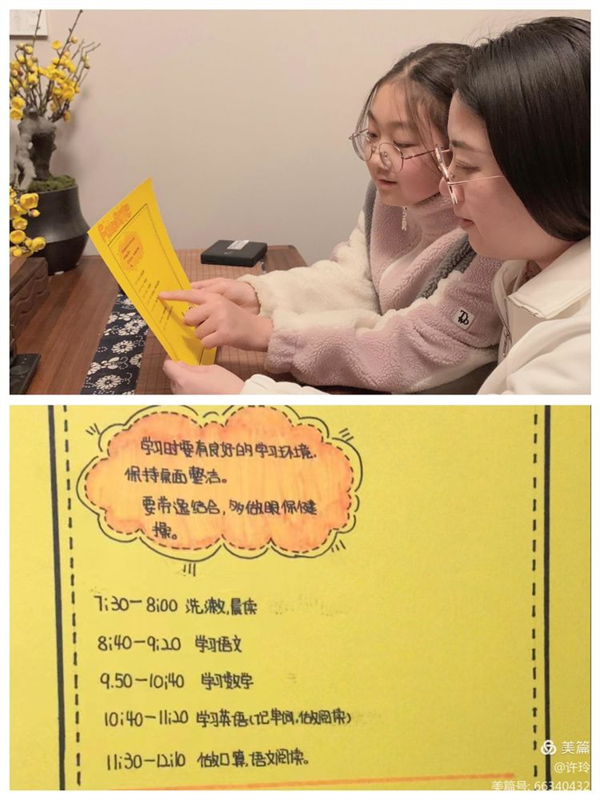 学习时要有良好的学习环境.
保持桌面整洁。
要劳逸结合,多做眼保健
操。
7:30-8:00 洗漱,晨读
8:40-9:20 学习语文
9.50-10:40 学习数学
10:40-11:20 学习英语(记单词,做阅读)
11:30-12:10 做口算,语文阅读。
美篇
@许玲
美篇号: 66340432